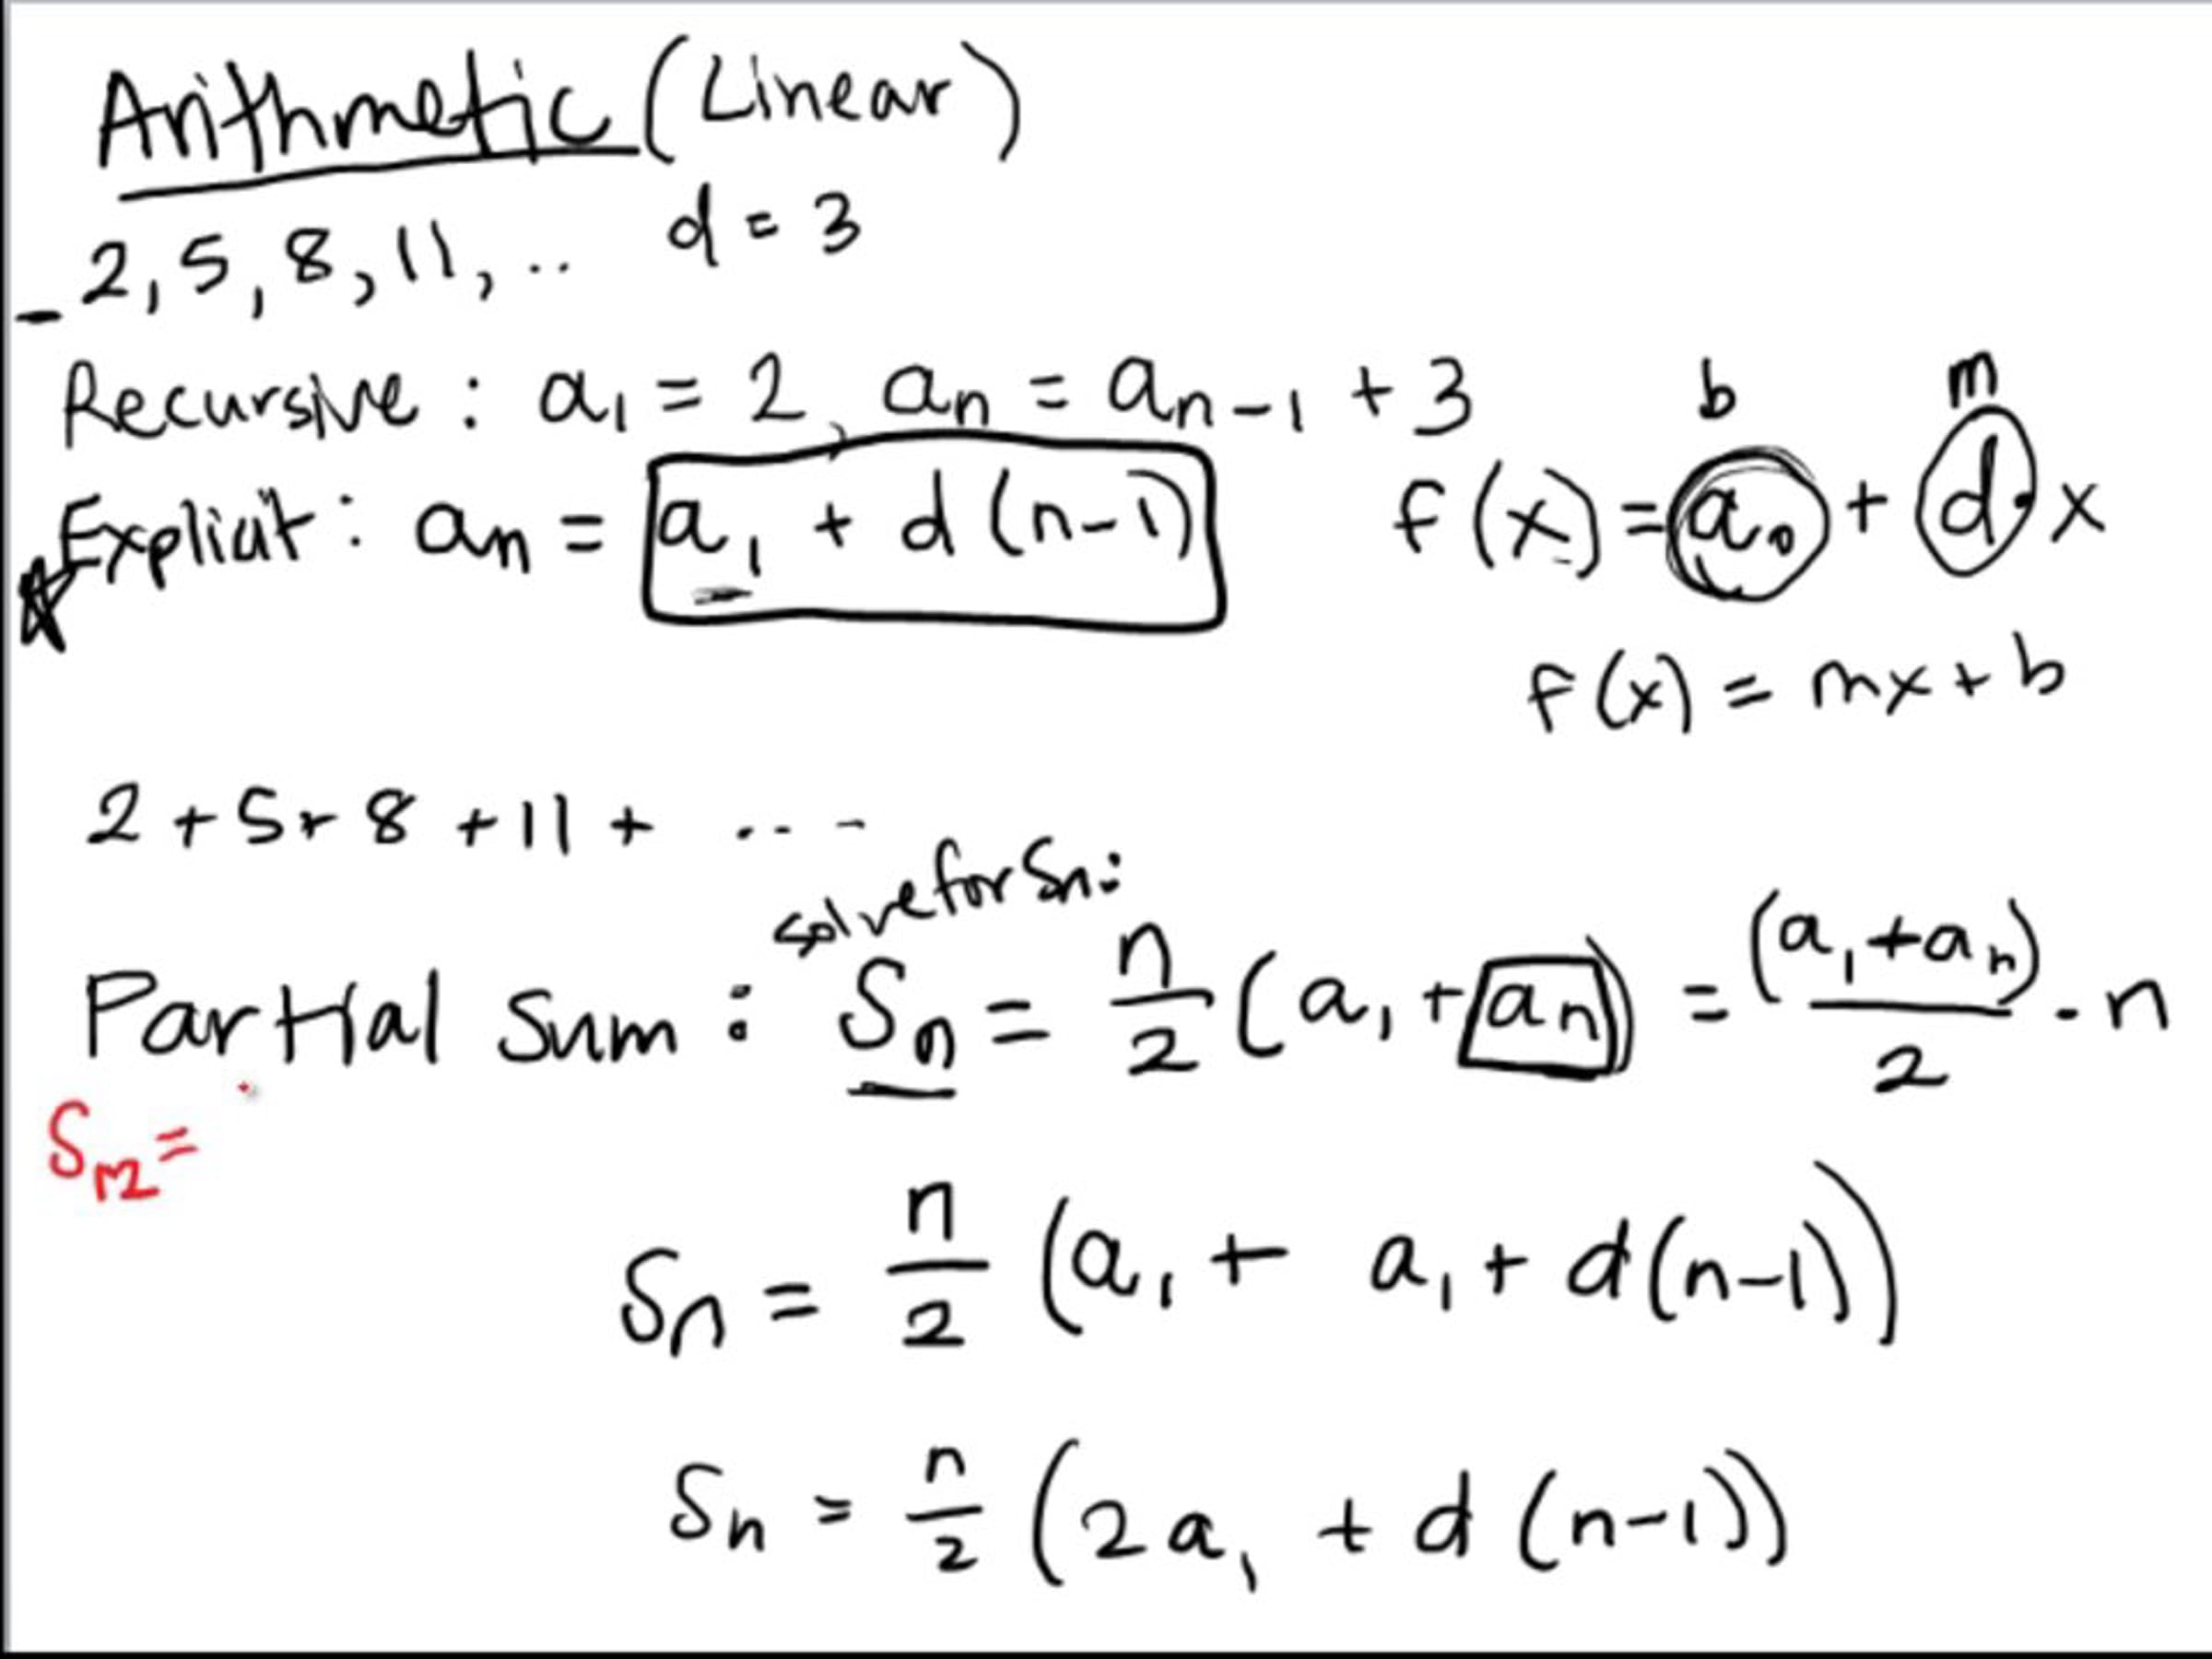 Arithmetic (Linear)
2, 5, 8, 11, .. d = 3
Recursive : a₁ = 2, aₙ = aₙ₋₁ + 3
b m
Explicit : aₙ = a₁ + d (n-1) f(x) = a₀ + d · x
f(x) = mx + b
2 + 5 + 8 + 11 + ...
solve for Sn:
Partial Sum : Sₙ = n/2 (a₁ + aₙ) = (a₁ + aₙ)/2 · n
S₁₂ =
Sₙ = n/2 (a₁ + a₁ + d(n-1))
Sₙ = n/2 (2a₁ + d (n-1))